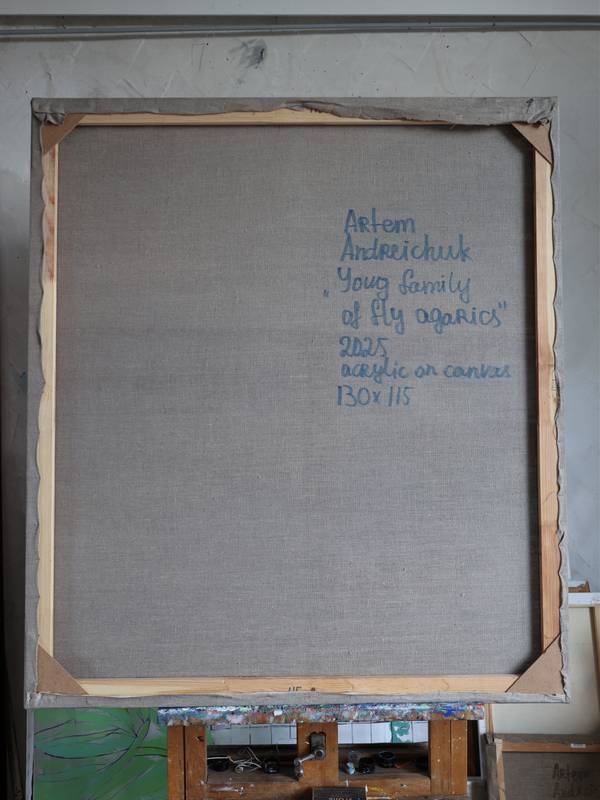 Artem
Andreichuk
„Youg family
of fly agarics"
2025
acrylic on canvas
130x115
Artem